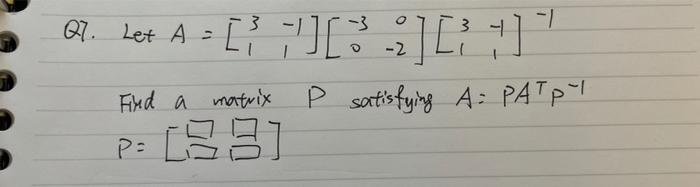 Q7. Let A = [3 -1; 1 1] [-3 0; 0 -2] [3 -1; 1 1]⁻¹
Find a matrix P satisfying A = PAᵀP⁻¹
P = [□ □; □ □]